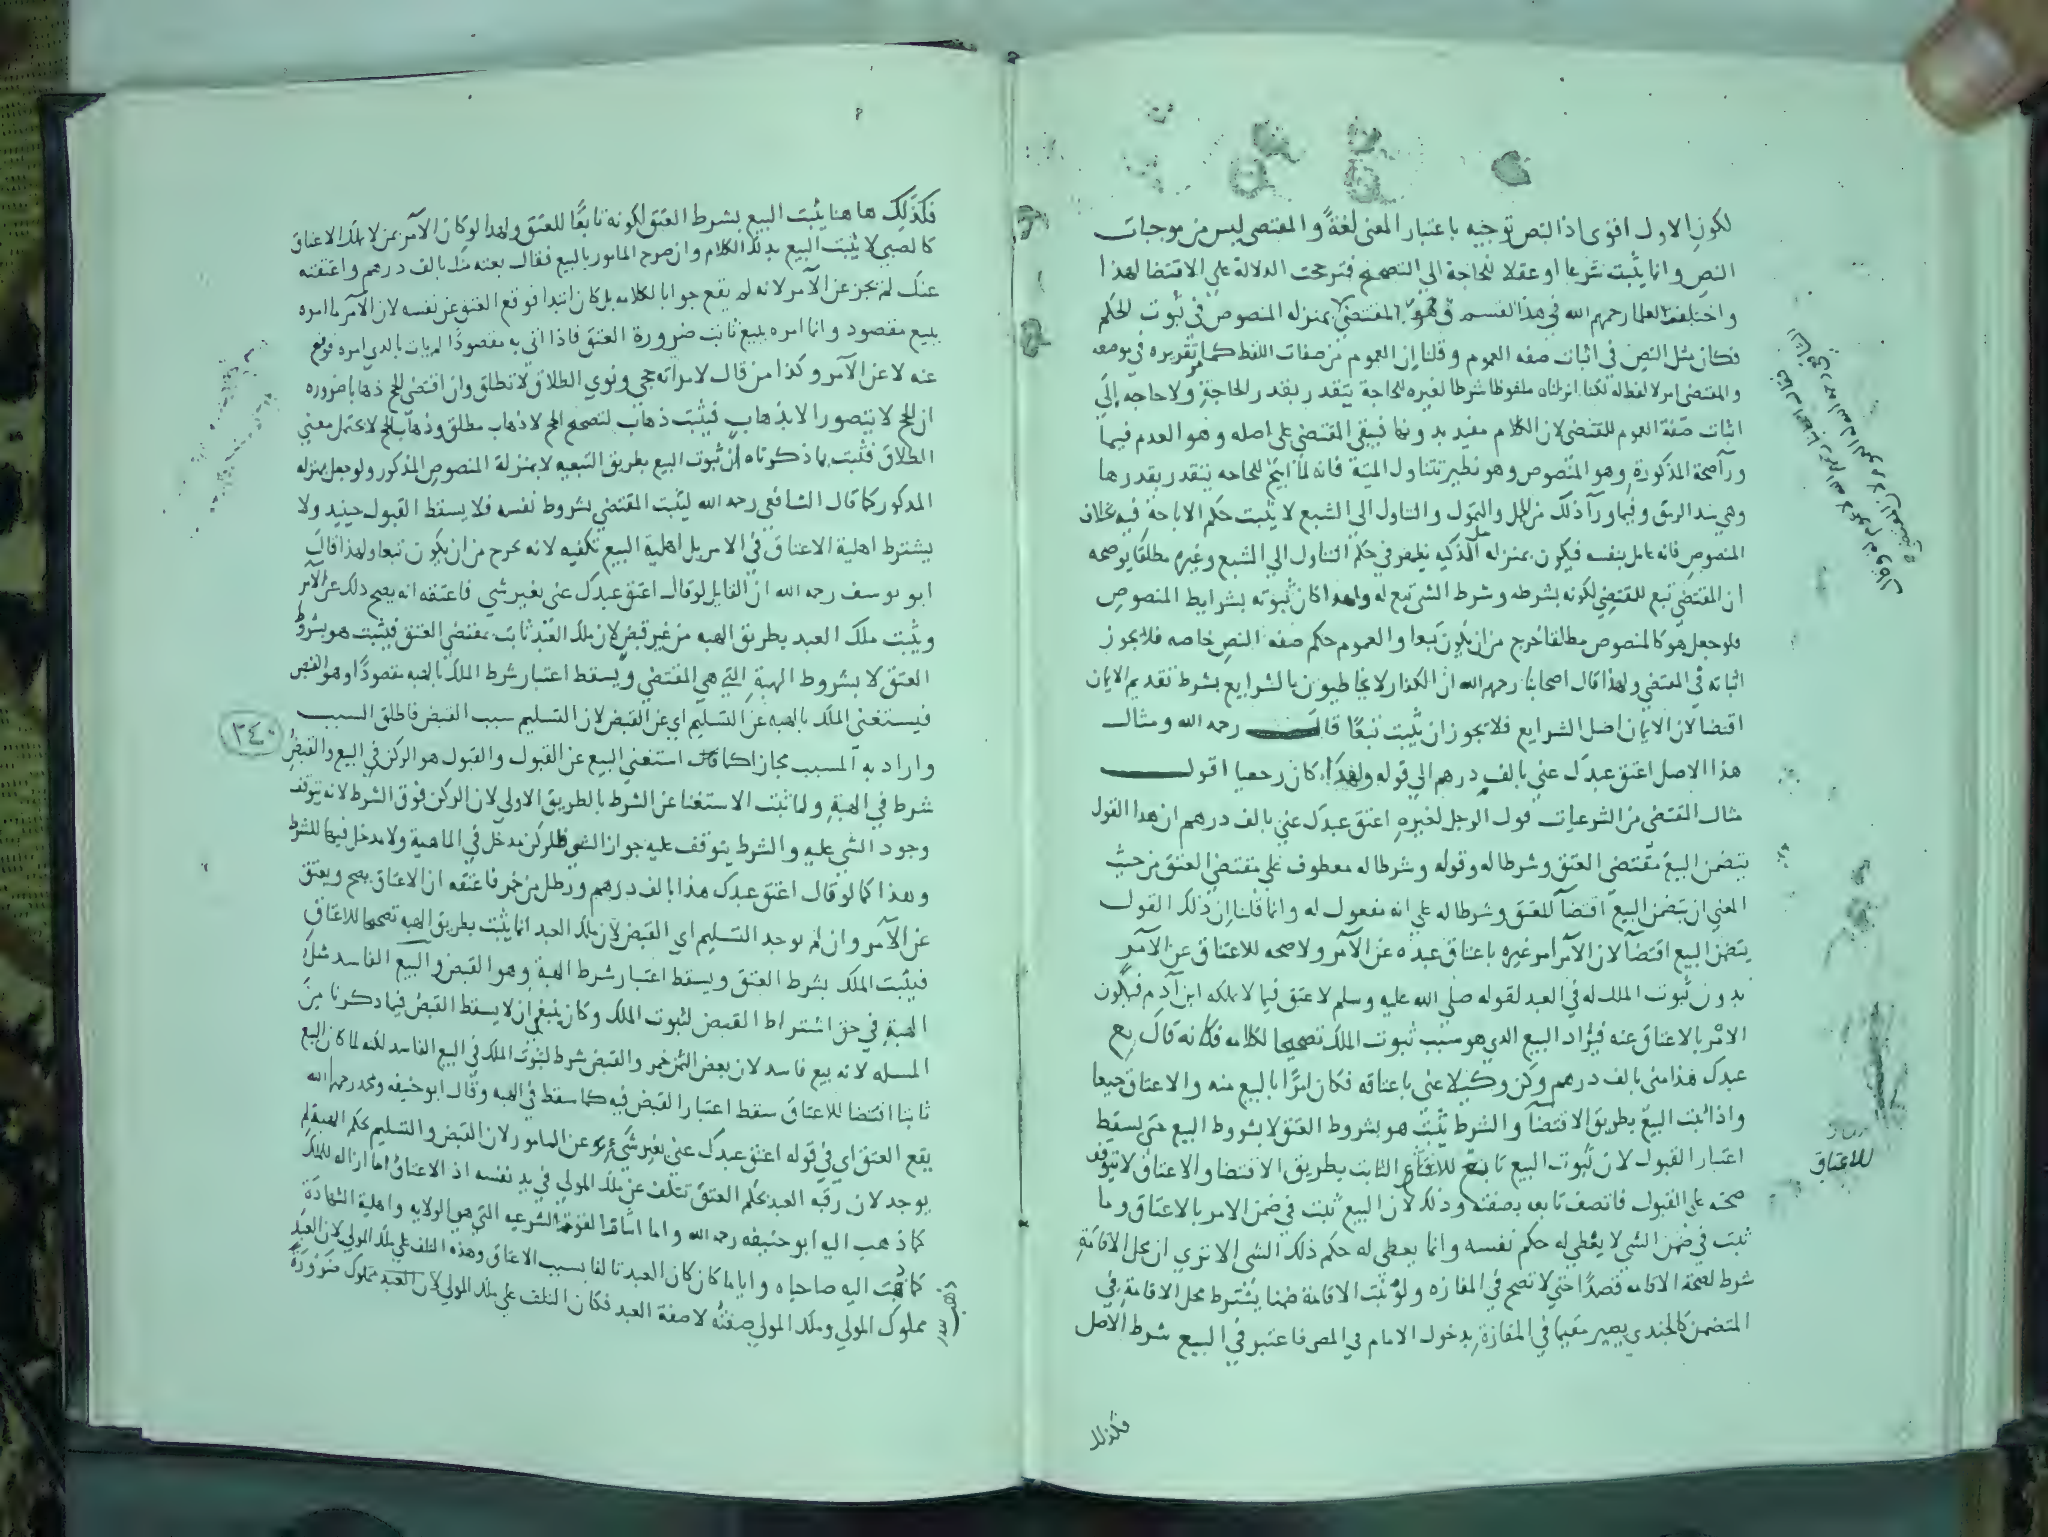 لكون الاول اقوى اذ النص توجيه باعتبار المعنى لغة والمقتضى ليس من موجبات
النص وانما يثبت شرعا او عقلا للحاجة الى التصحيح فترجحت الدلالة على الاقتضا لهذا
واختلف العلما رحمهم الله في هذا القسم المقتضى بمنزله المنصوص في ثبوت الحكم
فكان مثل النص في اثبات صفه العموم وقلنا ان العموم من صفات اللفظ كما مر تقريره في موضعه
والمقتضى امر لا لفظ له لكنا انزلناه ملفوظا شرطا لغيره للحاجة يتقدر بقدر الحاجة ولا حاجه الى
اثبات صفة العموم للمقتضى لان الكلام مفيد بدونها فيبقى المقتضى على اصله وهو العدم فيما
ورآ صحة المذكورة وهو المنصوص وهو نظير تناول الميتة فانه لما ابيح للحاجه يتقدر بقدرها
وهي سد الرمق وفيما ورآ ذلك من الحمل والتمول والتناول الى الشبع لا يثبت حكم الاباحة فيه بخلاف
المنصوص فانه عامل بنفسه فيكون بمنزله حل الذكيه يظهر في حكم التناول الى الشبع وغيره مطلقا يوضحه
ان المقتضى تبع للمقتضي لكونه بشرطه وشرط الشي تبع له ولهذا كان ثبوته بشرايط المنصوص
فلو جعل هو كالمنصوص مطلقا خرج من ان يكون تبعا والعموم حكم صفه النص خاصه فلا يجوز
اثباته في المقتضى ولهذا قال اصحابنا رحمهم الله ان الكفار لا يخاطبون بالشرايع بشرط تقديم الايمان
اقتضا لان الايمان اصل الشرايع فلا يجوز ان يثبت تبعًا قال رحمه الله ومثال
هذا الاصل اعتق عبدك عني بالف درهم الى قوله ولهذا كان رجعيا اقول
مثال المقتضى من الشرعيات قول الرجل لغيره اعتق عبدك عني بالف درهم ان هذا القول
يتضمن البيع مقتضى العتق وشرطا له وقوله وشرطا له معطوف على مقتضى العتق من حيث
المعنى ان يتضمن البيع اقتضآ للعتق وشرطا له على انه مفعول له وانما قلنا ان ذلك القول
يتضمن البيع اقتضآ لان الآمر امر غيره باعتاق عبده عن الآمر ولا صحه للاعتاق عن الآمر
بدون ثبوت الملك له في العبد لقوله صلى الله عليه وسلم لا عتق فيما لا يملكه ابن آدم فيكون
الامر بالاعتاق عنه فيزاد البيع الذي هو سبب ثبوت الملك تصحيحا لكلامه فكانه قال بع
عبدك هذا مني بالف درهم وكن وكيلا عني باعتاقه فكان امرًا بالبيع منه والاعتاق جميعا
واذا ثبت البيع بطريق الاقتضآ والشرط يثبت هو بشروط العتق لا بشروط البيع حتى يسقط
اعتبار القبول لان ثبوت البيع تابع للاعتاق الثابت بطريق الاقتضا والاعتاق لا يتوقف
صحته على القبول فاتصف تابعه بصفته وذلك لان البيع ثبت في ضمن الامر بالاعتاق وما
ثبت في ضمن الشي لا يعطى له حكم نفسه وانما يعطى له حكم ذلك الشي الا ترى ان محل الاقامة
شرط لصحة الاقامه قصدًا حتى لا تصح في المفازه ولو ثبت الاقامة ضمنا يشترط محل الاقامة في
المتضمن كالجندي يصير مقيما في المفازة بدخول الامام في المصر فاعتبر في البيع شرط الاصل
فكذلك
للاعتاق
فكذلك ها هنا يثبت البيع بشرط العتق لكونه تابعًا للعتق ولهذا لو كان الآمر ممن لا يملك الاعتاق
كالصبي لا يثبت البيع بذلك الكلام وان صرح المامور بالبيع فقال بعته منك بالف درهم واعتقته
عنك لم يجز عن الآمر لانه لم يقع جوابا لكلامه بل كان ابتدا فوقع العتق عن نفسه لان الآمر ما امره
ببيع مقصود وانما امره ببيع ثابت ضرورة العتق فاذا اتى به مقصودًا لم يات بالذي امره فوقع
عنه لا عن الآمر وكذا من قال لامراته حجي ونوى الطلاق لا تطلق وان اقتضى الحج ذهابا ضروره
ان الحج لا يتصور الا بذهاب فيثبت ذهاب لتصحيح الحج لا ذهاب مطلق وذهاب الحج لا يحتمل معنى
الطلاق فثبت بما ذكرناه ان ثبوت البيع بطريق التبعيه لا بمنزلة المنصوص المذكور ولو جعل بمنزله
المذكور كما قال الشافعي رحمه الله ليثبت المقتضى بشروط نفسه فلا يسقط القبول حينيذ ولا
يشترط اهلية الاعتاق في الامر بل اهلية البيع تكفيه لانه يخرج من ان يكون تبعا ولهذا قال
ابو يوسف رحمه الله ان القايل لو قال اعتق عبدك عني بغير شي فاعتقه انه يصح ذلك عن الآمر
ويثبت ملك العبد بطريق الهبه من غير قبض لان ملك العبد ثابت بمقتضى العتق فيثبت هو بشروط
العتق لا بشروط الهبة التي هي المقتضى ويسقط اعتبار شرط الملك بالهبه مقصودًا وهو القبض
فيستغني الملك بالهبه عن التسليم اي عن القبض لان التسليم سبب القبض فاطلق السبب
واراد به المسبب مجازا كما قال استغنى البيع عن القبول والقبول هو الركن في البيع والقبض
شرط في الهبة ولما ثبت الاستغنا عن الشرط بالطريق الاولى لان الركن فوق الشرط لانه يتوقف
وجود الشي عليه والشرط يتوقف عليه جواز الشي وللركن مدخل في الماهية ولا مدخل فيها للشرط
وهذا كما لو قال اعتق عبدك هذا بالف درهم ورطل من خمر فاعتقه ان الاعتاق يصح ويعتق
عن الآمر وان لم يوجد التسليم اي القبض لان ملك العبد انما يثبت بطريق الهبه تصحيحا للاعتاق
فيثبت الملك بشرط العتق ويسقط اعتبار شرط الهبة وهو القبض والبيع الفاسد مثل
الهبة في حق اشتراط القبض لثبوت الملك وكان ينبغي ان لا يسقط القبض فيما ذكرنا من
المسله لانه بيع فاسد لان بعض الثمن خمر والقبض شرط لثبوت الملك في البيع الفاسد لكنه لما كان البيع
ثابتا اقتضا للاعتاق سقط اعتبار القبض فيه كما سقط في الهبه وقال ابو حنيفه ومحمد رحمهما الله
يقع العتق اي في قوله اعتق عبدك عني بغير شي عن المامور لان القبض والتسليم بحكم الهبة لم
يوجد لان رقبه العبد بحكم العتق تتلف عن ملك المولى في يد نفسه اذ الاعتاق اما ازاله للملك
كما ذهب اليه ابو حنيفه رحمه الله واما اثبات القوة الشرعيه التي هو الولايه واهلية الشهادة
كما ذهب اليه صاحباه واياما كان كان العبد تالفا بسبب الاعتاق وهذه التلف على ملك المولى لان العبد
مملوك المولى وملك المولى صفته لا صفة العبد فكان التلف على ملك المولى لان العبد مملوك ضرورة
٣٤٠